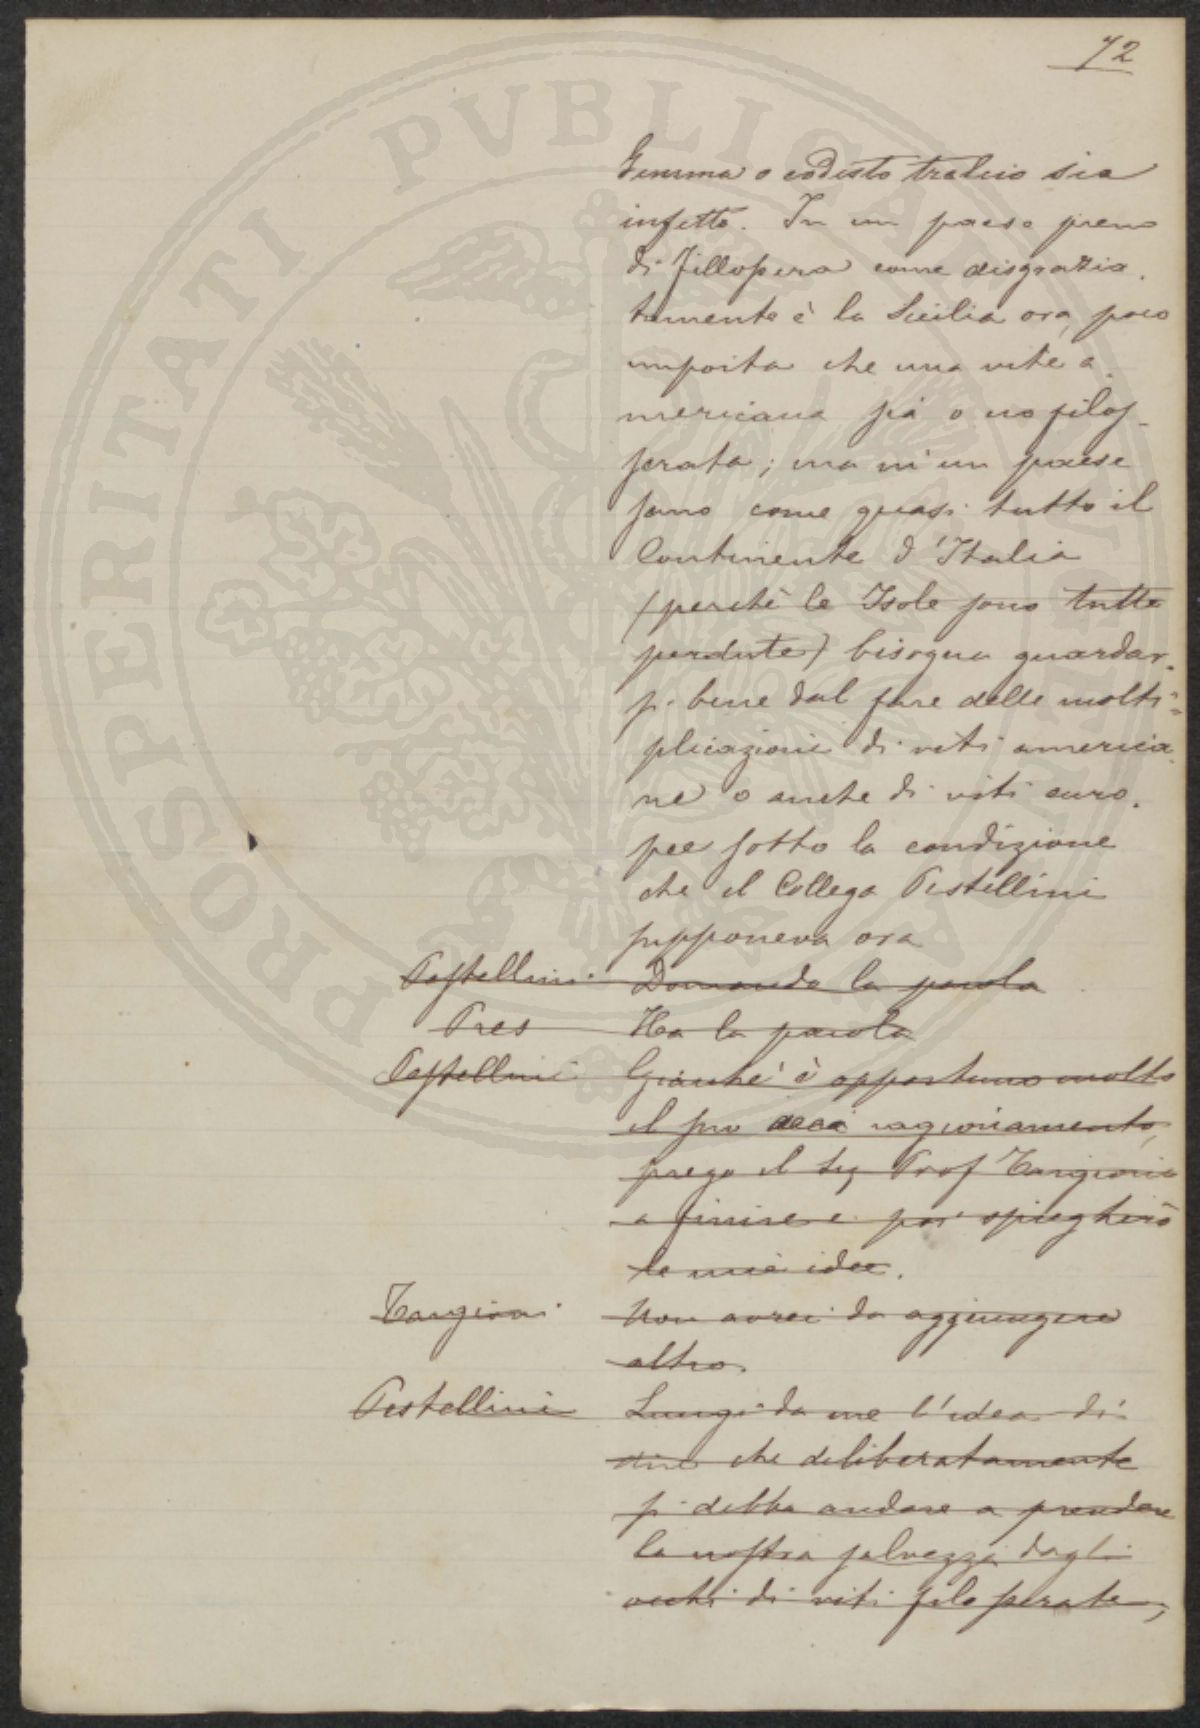 72
Gemma o codesto tralcio sia
infetto. In un paese pieno
di fillossera come disgrazia.
tamente è la Sicilia ora, poco
importa che una vite a.
mericana sia o no filos-
serata; ma in un paese
sano come quasi tutto il
Continente d'Italia
(perchè le Isole sono tutte
perdute) bisogna guardar.
si bene dal fare delle molti=
plicazioni di viti america.
ne o anche di viti euro.
pee sotto la condizione
che il Collega Pestellini
supponeva ora
Pestellini Domando la parola
Pres Ha la parola
Pestellini Giacchè è opportuno molto
il suo ragionamento,
prego il Sig Prof Targioni
a finire e poi spiegherò
le mie idee.
Targioni Non avrei da aggiungere
altro.
Pestellini Lungi da me l'idea di
dire che deliberatamente
si debba andare a prendere
la nostra salvezza dagli
occhi di viti filosserate,
PROSPERITATI PVBLICAE AVGENDAE